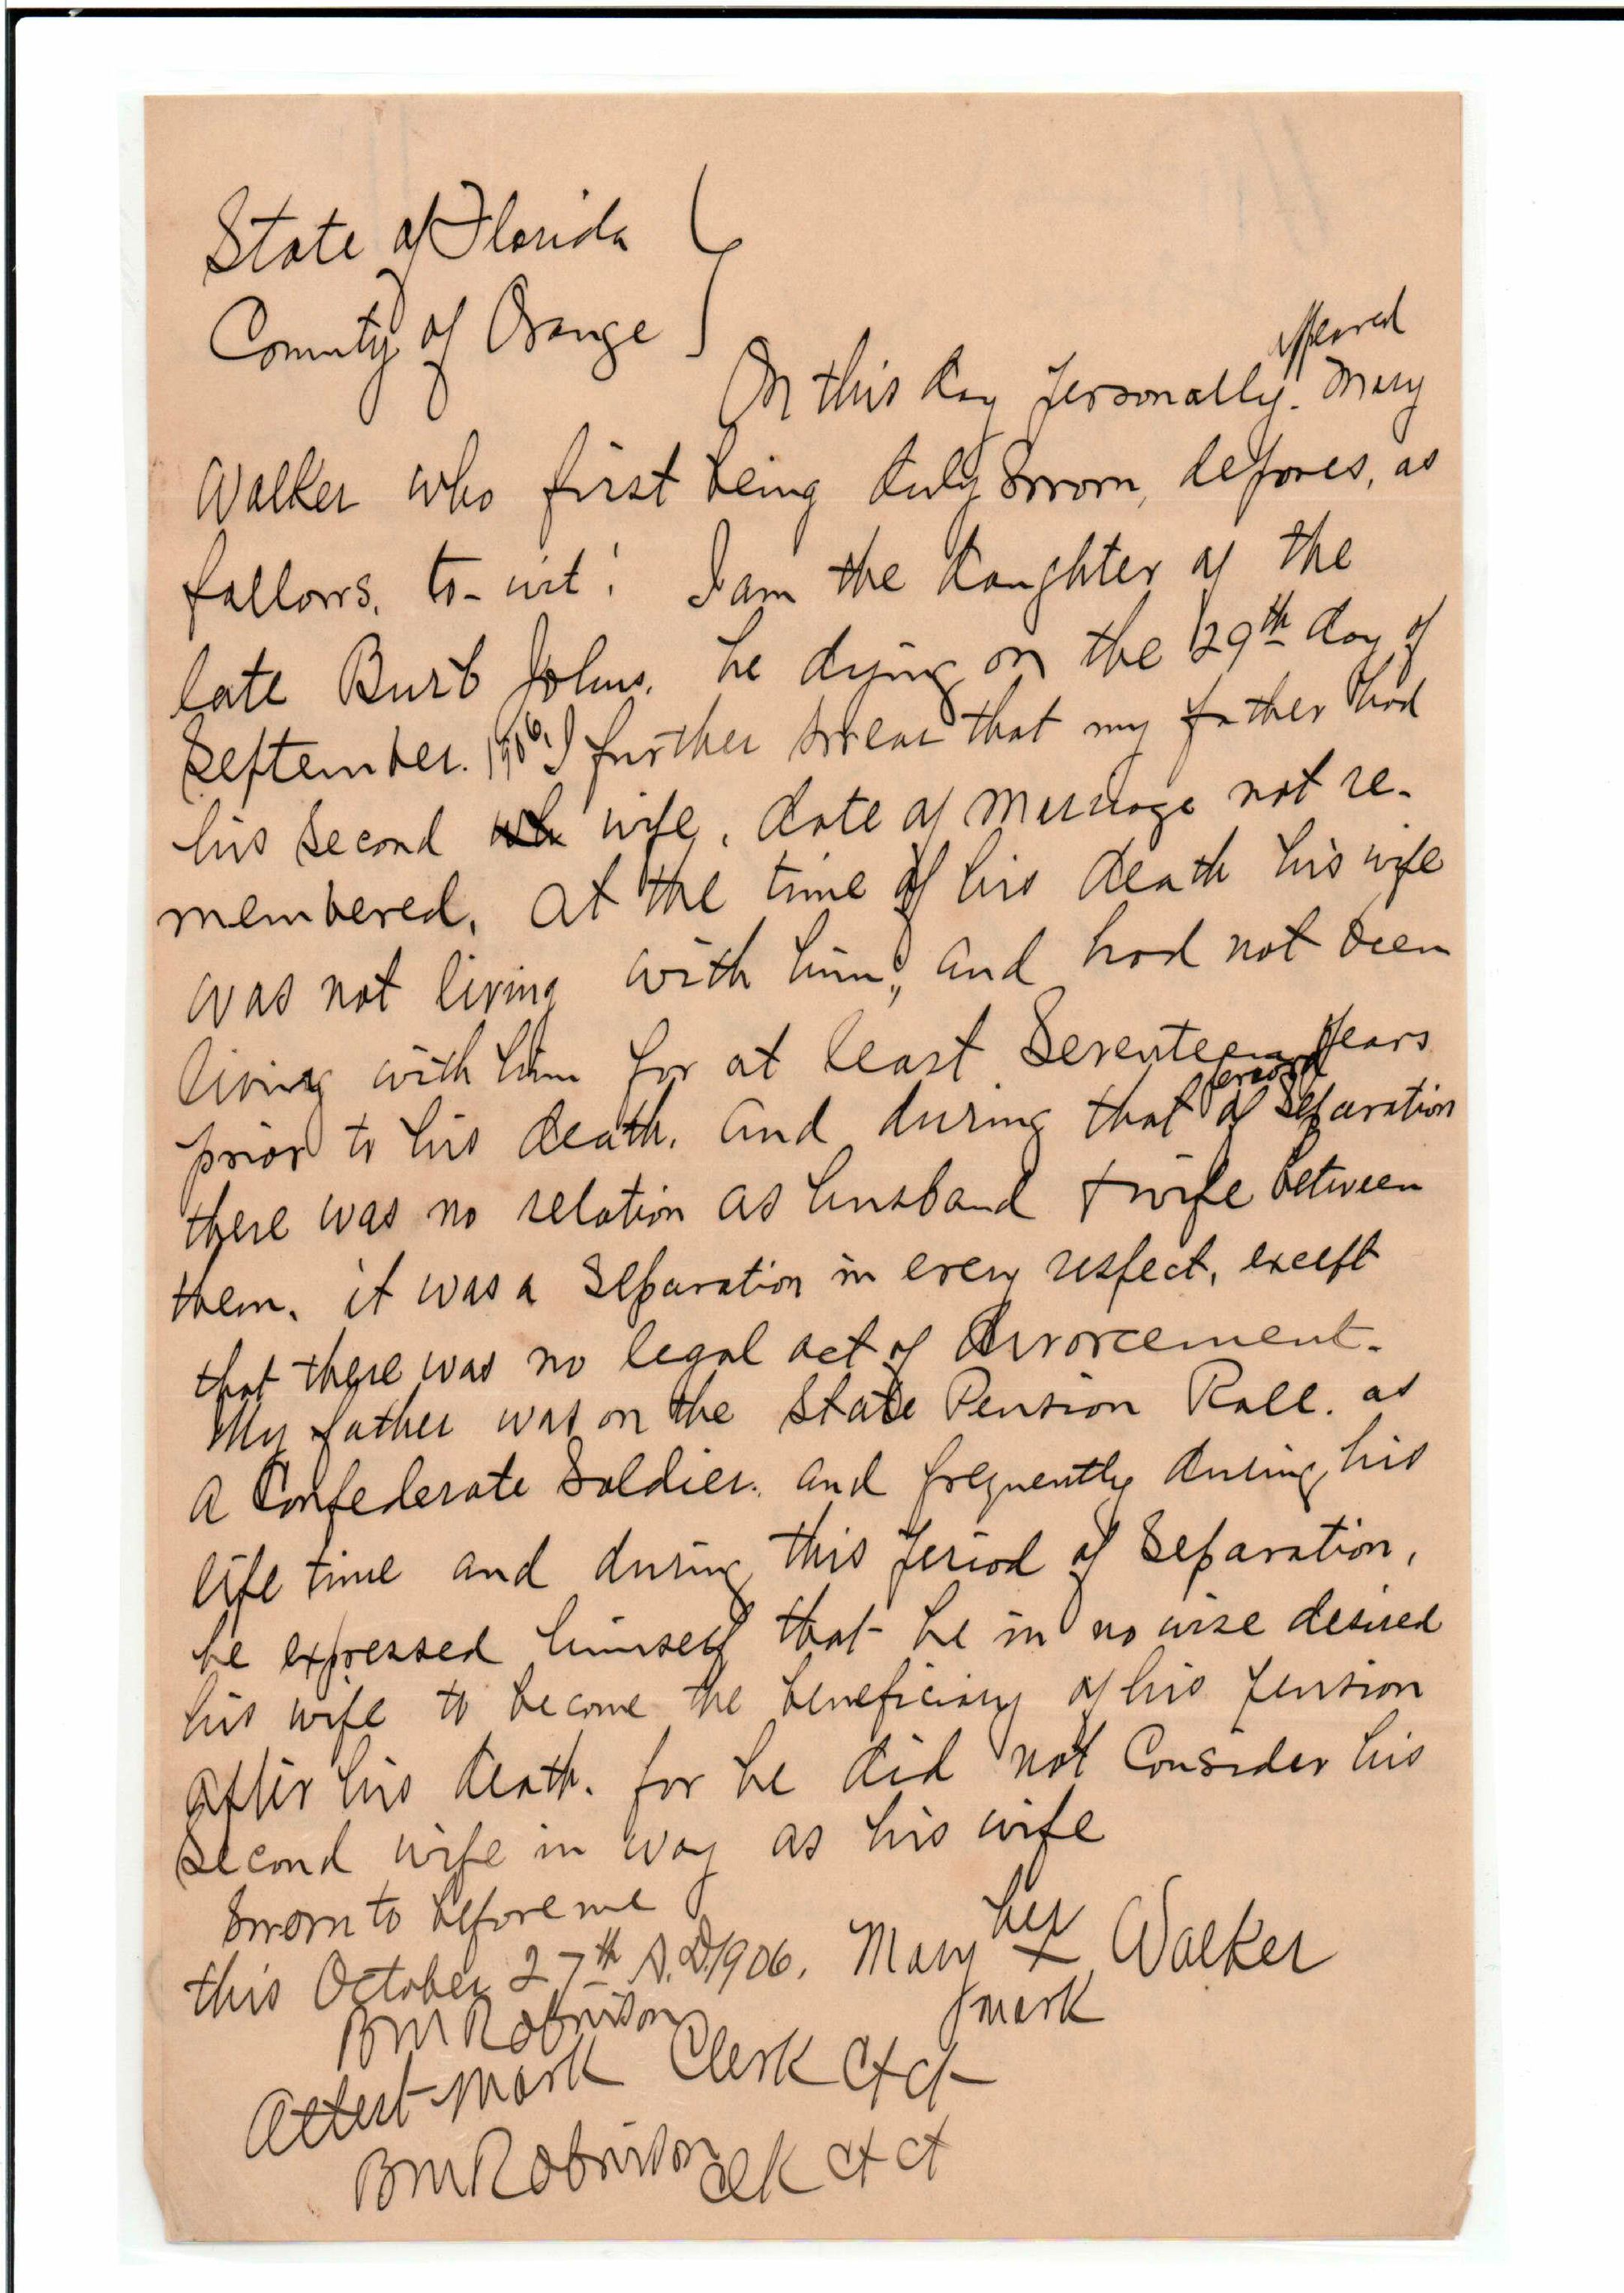 State of Florida
County of Orange }
On this day personally appeared Mary
Walker who first being duly Sworn, deposes, as
follows, to-wit: I am the daughter of the
late Burb Johns, he dying on the 29th day of
September. 1906. I further swear that my father had
his second wife, date of marriage not re-
membered, at the time of his death his wife
was not living with him, and had not been
living with him for at least Seventeen years
prior to his death. and during that period of Separation
there was no relation as husband & wife between
them, it was a Separation in every respect, except
that there was no legal act of divorcement.
My father was on the State Pension Roll. as
a Confederate Soldier. and frequently during his
life time and during this period of Separation,
he expressed himself that he in no wise desired
his wife to become the beneficiary of his pension
after his death. for he did not Consider his
second wife in way as his wife
Sworn to before me
this October 27th A.D. 1906. Mary her x mark Walker
BM Robinson
Clerk Ct Ct
Attest Mark
BM Robinson Clk Ct Ct